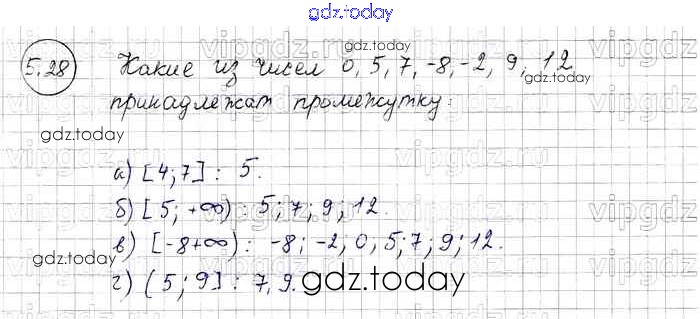 gdz.today
5.28 Какие из чисел 0, 5, 7, -8, -2, 9, 12
gdz.today
gdz.today
принадлежат промежутку:
gdz.today
а) [4;7]: 5.
б) [5; +∞): 5; 7; 9; 12.
в) [-8+∞): -8; -2; 0, 5; 7; 9; 12.
gdz.today
г) (5; 9]: 7, 9.
gdz.today
vipgdz